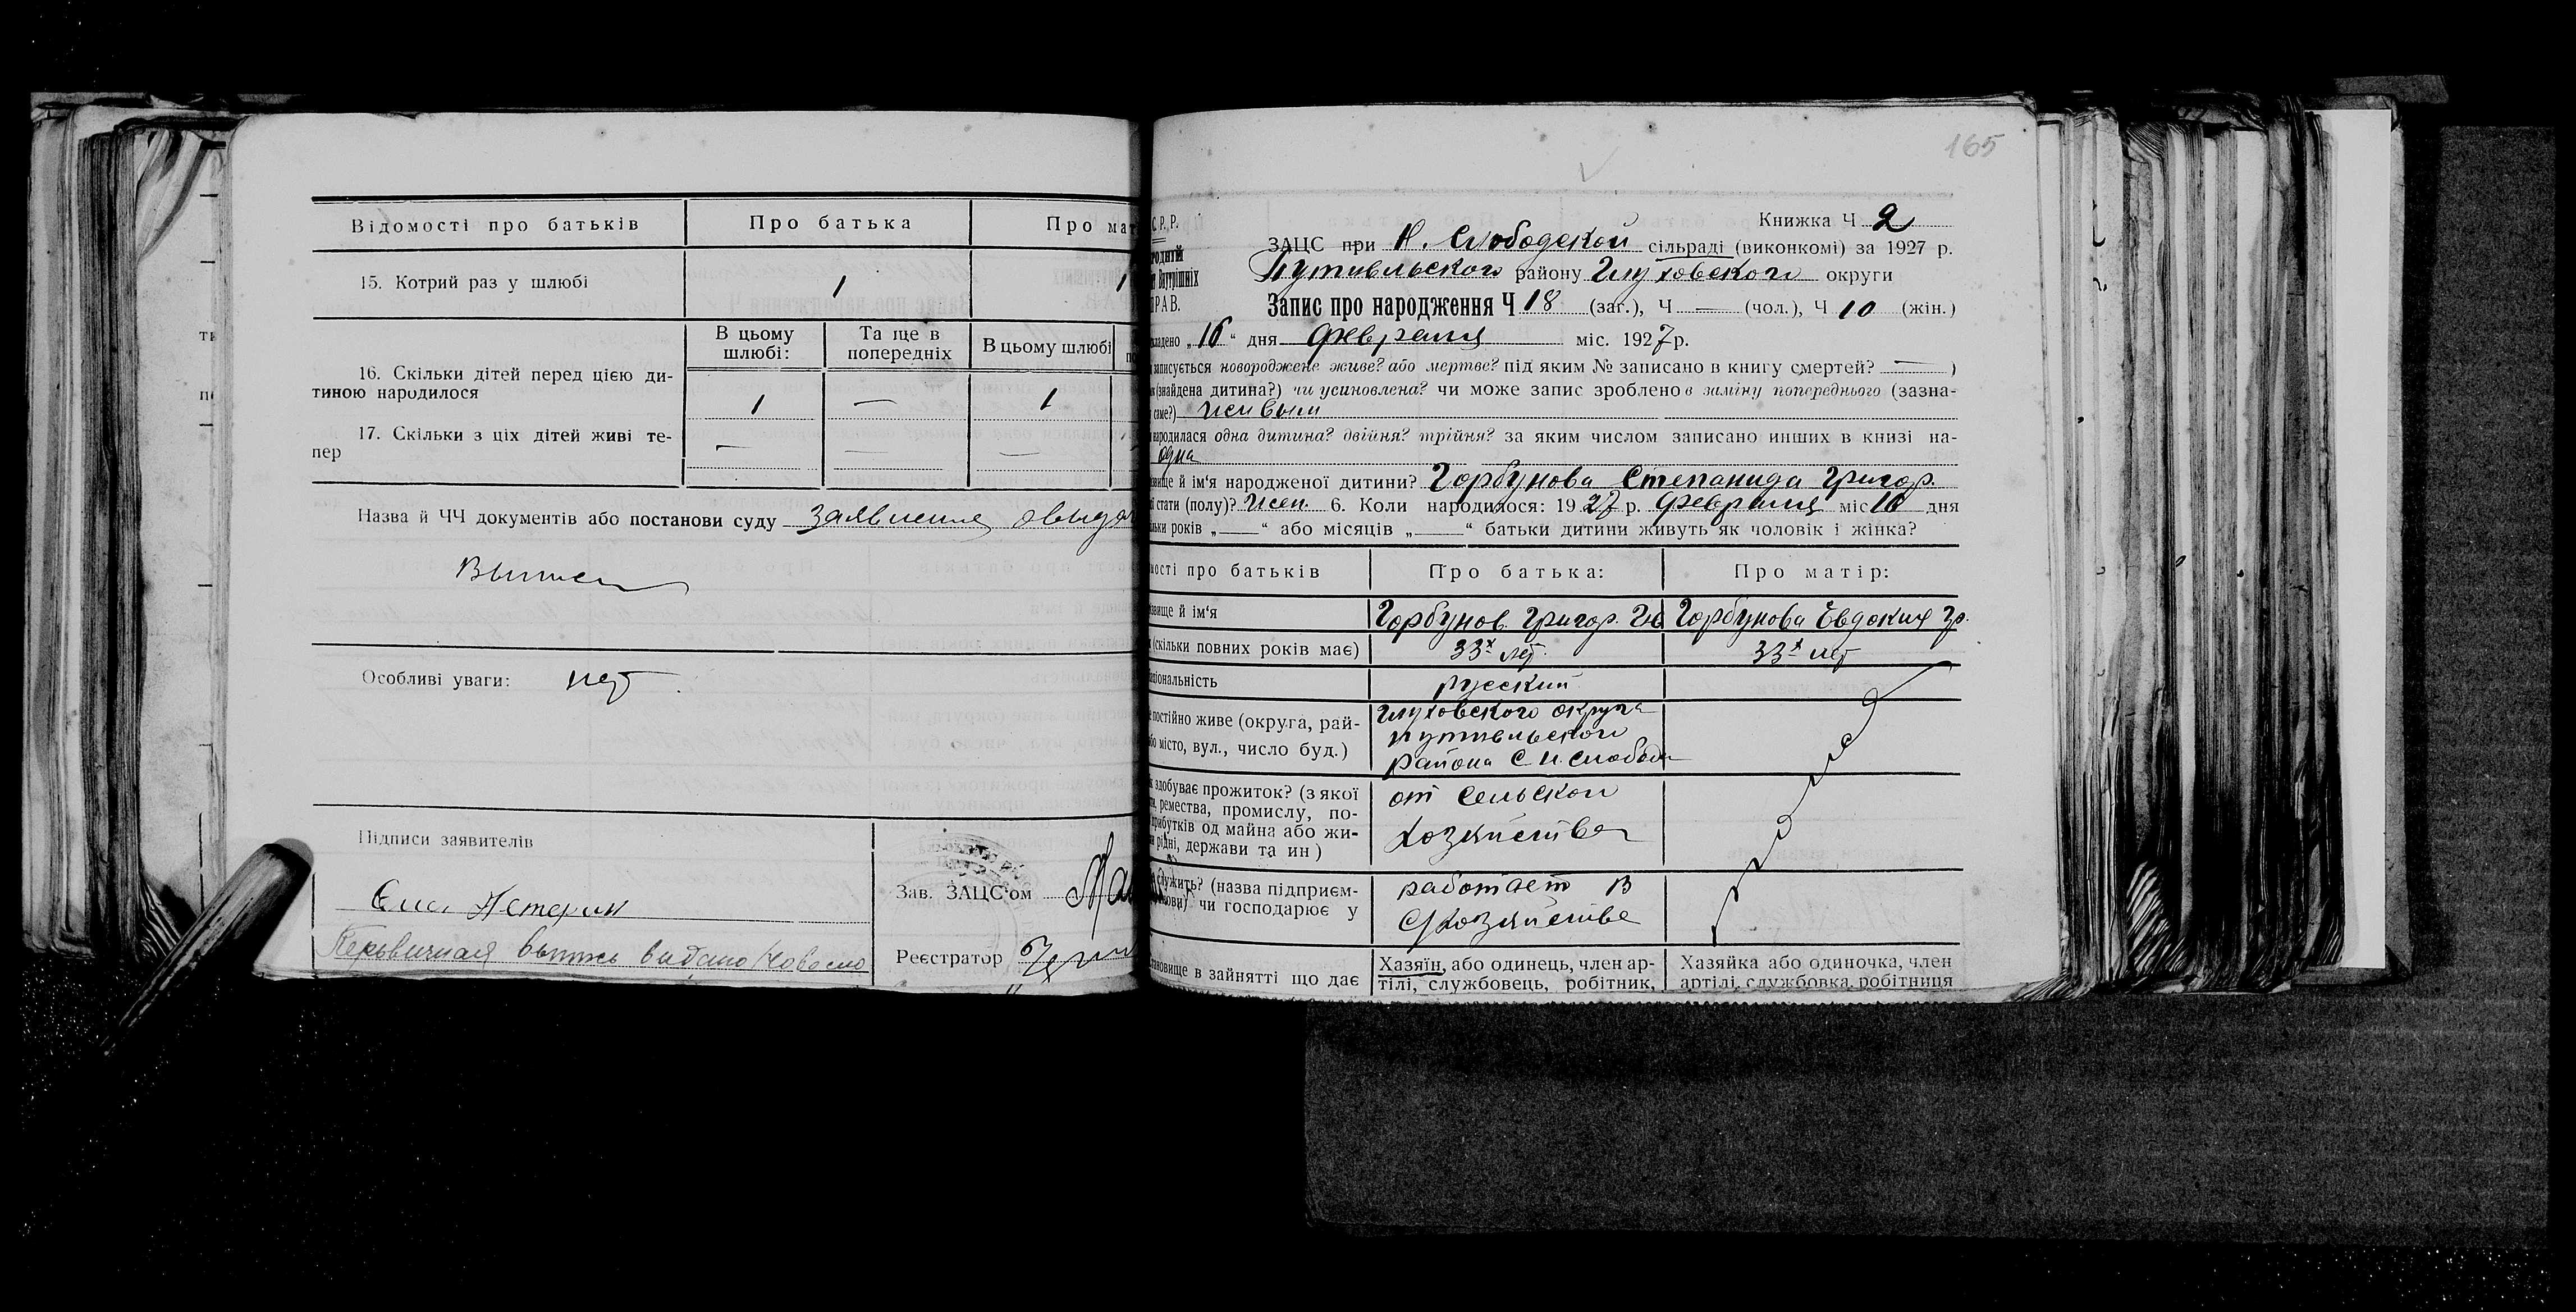 Відомості про батьків Про батька Про мат
15. Котрий раз у шлюбі 1 1
В цьому шлюбі: Та ще в попередніх В цьому шлюбі
16. Скільки дітей перед цією ди-
тиною народилося 1 — 1
17. Скільки з ціх дітей живі те-
пер — — —
Назва й ЧЧ документів або постанови суду заявление
Особливі уваги: нет
Підписи заявителів
Зав. ЗАЦС'ом
Реєстратор
Первичная выпись
165
С.Р.Р.
Книжка Ч 2
ЗАЦС при Н. Слободской сільраді (виконкомі) за 1927 р.
Путивльского району Глуховского округи
Запис про народження Ч 18 (заг.), Ч — (чол.), Ч 10 (жін.)
кладено „16“ дня февраля міс. 1927 р.
записується новороджене живе? або мертве? під яким № записано в книгу смертей? — )
(знайдена дитина?) чи усиновлена? чи може запис зроблено в заміну попереднього (зазна-
саме?) живым
народилася одна дитина? двійня? трійня? за яким числом записано инших в книзі на-
одна
звище й ім'я народженої дитини? Горбунова Степанида Григор.
стати (полу)? жен. 6. Коли народилося: 1927 р. февраля міс 16 дня
років „—“ або місяців „—“ батьки дитини живуть як чоловік і жінка?
ості про батьків Про батька: Про матір:
звище й ім'я Горбунов Григор. Горбунова Евдокия Гр.
(скільки повних років має) 33х лет. 33х лет
аціональність русский
постійно живе (округа, рай- Глуховского округа
бо місто, вул., число буд.) Путивльского
района С Н. Слобода
здобуває прожиток? (з якої от сельского
ремества, промислу, по-
прибутків од майна або жи- хозяйства
рідні, держави та ин)
служить? (назва підприєм- работает в
чи господарює у С/хозяйстве
ановище в зайнятті що дає Хазяїн, або одинець, член ар- Хазяйка або одиночка, член
тілі, службовець, робітник, артілі, службовка, робітниця